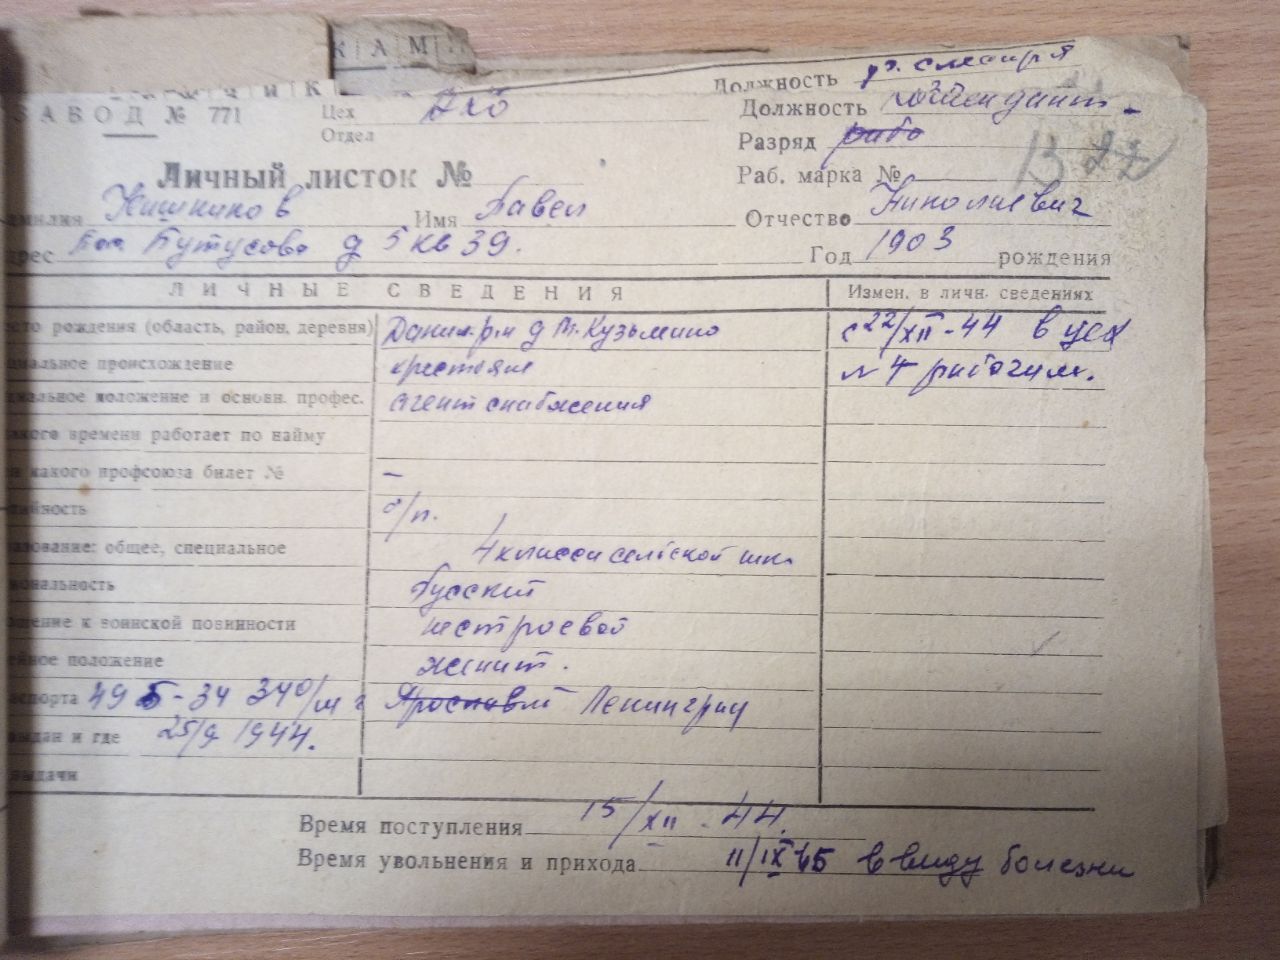 К А М
Должность уч. слесаря
ЗАВОД № 771 Цех АХО Должность комендант -
Отдел
Разряд рабо
Личный листок № Раб. марка №
амилия Имя Павел Отчество Николаевич
рес Бутусова д 5 кв 39. Год 1903 рождения
ЛИЧНЫЕ СВЕДЕНИЯ Измен. в личн. сведениях
сто рождения (область, район, деревня) Данил. р-н д М. Кузьмино с 22/XII - 44 в цех
циальное происхождение крестьяне № 4 рабочим.
циальное положение и основн. профес. агент снабжения
какого времени работает по найму
н какого профсоюза билет № –
тийность б/п.
зование: общее, специальное 4 класса сельской шк.
иональность Русский
ошение к воинской повинности нестроевой
ейное положение женат.
спорта 34 340 Ярославль Ленинград
ыдан и где 25/9 1944.
выдачи
Время поступления 15/XII - 44.
Время увольнения и прихода 11/IX 45 в виду болезни